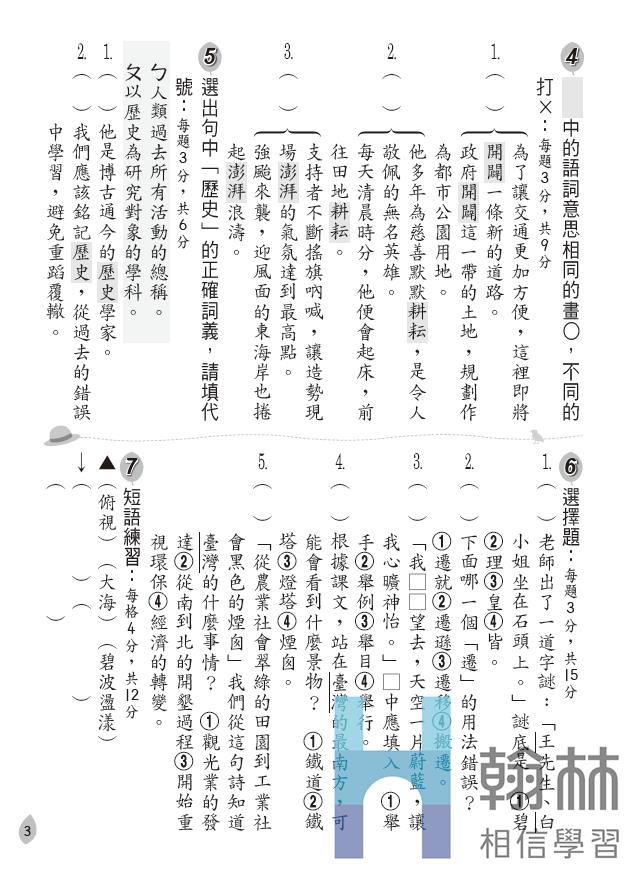 4 中的語詞意思相同的畫○，不同的
打×：每題3分，共9分
1.（　）
為了讓交通更加方便，這裡即將
開闢一條新的道路。
政府開闢這一帶的土地，規劃作
為都市公園用地。
2.（　）
他多年為慈善默默耕耘，是令人
敬佩的無名英雄。
每天清晨時分，他便會起床，前
往田地耕耘。
3.（　）
支持者不斷搖旗吶喊，讓造勢現
場澎湃的氣氛達到最高點。
強颱來襲，迎風面的東海岸也捲
起澎湃浪濤。
5 選出句中「歷史」的正確詞義，請填代
號：每題3分，共6分
ㄅ人類過去所有活動的總稱。
ㄆ以歷史為研究對象的學科。
1.（　）他是博古通今的歷史學家。
2.（　）我們應該銘記歷史，從過去的錯誤
中學習，避免重蹈覆轍。
6 選擇題：每題3分，共15分
1.（　）老師出了一道字謎：「王先生、白
小姐坐在石頭上。」謎底是①碧
②理③皇④皆。
2.（　）下面哪一個「遷」的用法錯誤？
①遷就②遷遜③遷移④搬遷。
3.（　）「我□□望去，天空一片蔚藍，讓
我心曠神怡。」□中應填入①舉
手②舉例③舉目④舉行。
4.（　）根據課文，站在臺灣的最南方，可
能會看到什麼景物？①鐵道②鐵
塔③燈塔④煙囪。
5.（　）「從農業社會翠綠的田園到工業社
會黑色的煙囪」我們從這句詩知道
臺灣的什麼事情？①觀光業的發
達②從南到北的開墾過程③開始重
視環保④經濟的轉變。
7 短語練習：每格4分，共12分
▲（俯視）（大海）（碧波盪漾）
↓（　）（　）（　）
3
翰林
相信學習